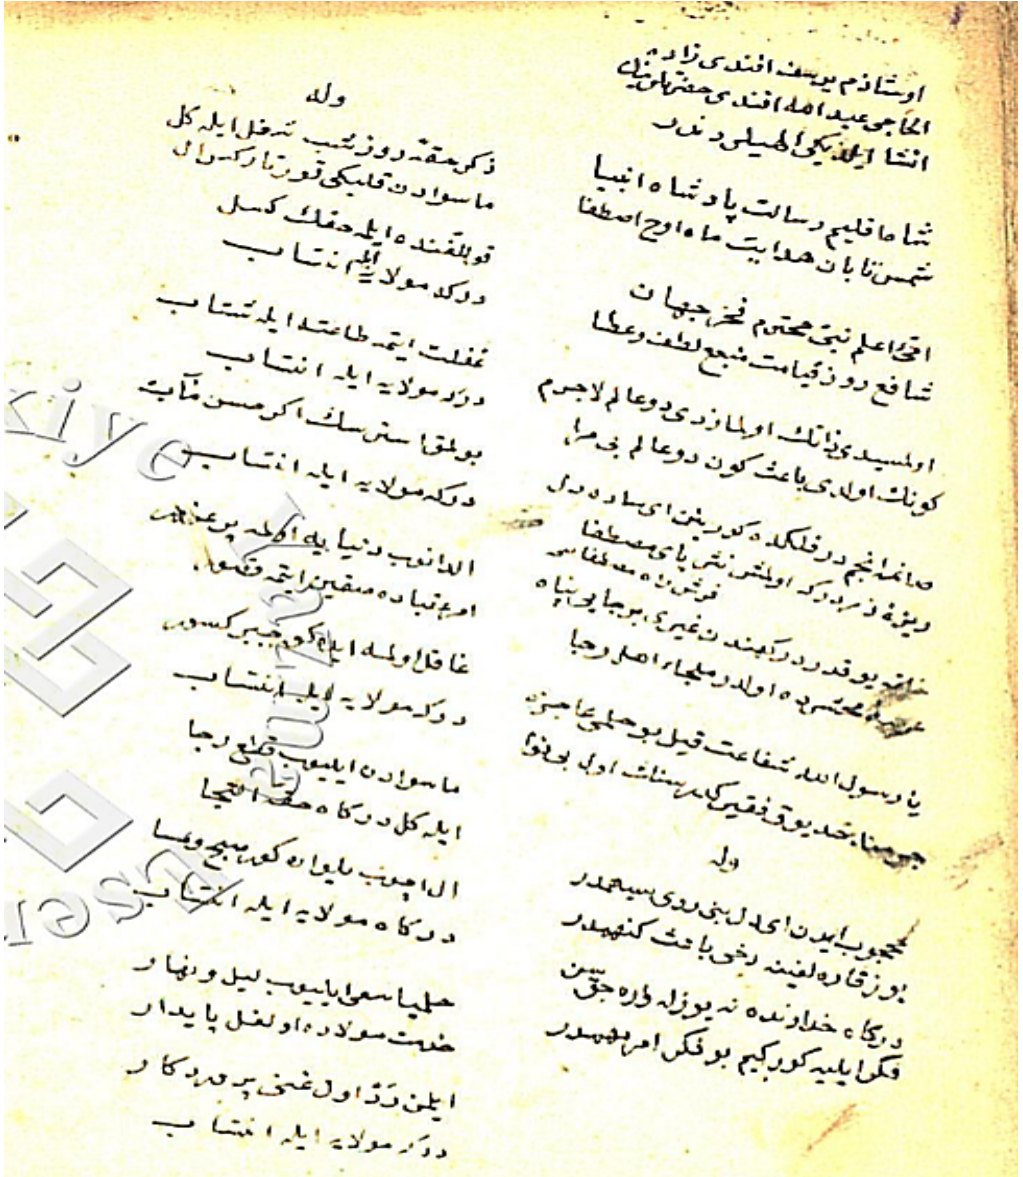 اوستاذم يوسف افندى زاده
الحاجى عبد الله افندى حضرتلرينك
انشا ايلديكى المسيلى دندر
شاه اقليم رسالت پادشاه انبيا
شمس تابان هدايت ماه اوج اصطفا
افخر اعلم نبئ محترم فخر جهان
شافع روز قيامت منبع لطف و عطا
اولمسيدى ذاتك اولمازدى دو عالم لاجرم
كونك اولدى باعث كون دو عالم بى مرا
صانمه انجم در فلكده كورينن اى ساده دل
ريزۀ در اولمش نثر پاى مصطفا
فرش راه مصطفا
يوقدر دركهندن غيرى بر جاى پناه
محشرده اولدر ملجاء اهل رجا
يا رسول الله شفاعت قيل بو حلمى عاجزه
جرمنه يوق فقير اول بى نوا
وله
محجوب ايدن اى دل بنى روى سيهمدر
يوز قاره لغينه دخى باعث كنهمدر
دركاه خداونده نه يوزله واره جقسين
فكر ايليه كور كيم بو فكر امر مهمدر
وله
ذكر حقه روز و شب شغل ايله كل
ماسوادن قلبكى قورتاركه وال
قوللقنده ايلمه حقك كسل
دركه مولايه ايله انتساب
غفلت ايتمه طاعته ايله شتاب
دركه مولايه ايله انتساب
بولمق استرسك اكر حسن مآب
دركه مولايه ايله انتساب
الدانوب دنيايه اولمه پر غرور
امر عقباده صقين ايتمه قصور
غافل اولمه ايله كور جبر كسور
دركه مولايه ايله انتساب
ماسوادن ايليوب قطع رجا
ايله كل دركاه حقه التجا
ال اچوب يلوار كور صبح و مسا
دركاه مولايه ايله انتساب
حلميا سعى ايليوب ليل و نهار
خدمت مولاده اولغل پايدار
ايلمز رد اول غنى پروردكار
دركه مولايه ايله انتساب
Türkiye Yazma Eser